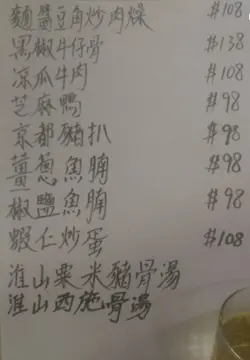 麵醬豆角炒肉燥 $108
黑椒牛仔骨 $138
涼瓜牛肉 $108
芝麻鴨 $98
京都豬扒 $98
薑蔥魚腩 $98
椒鹽魚腩 $98
蝦仁炒蛋 $108
淮山粟米豬骨湯
淮山西施骨湯